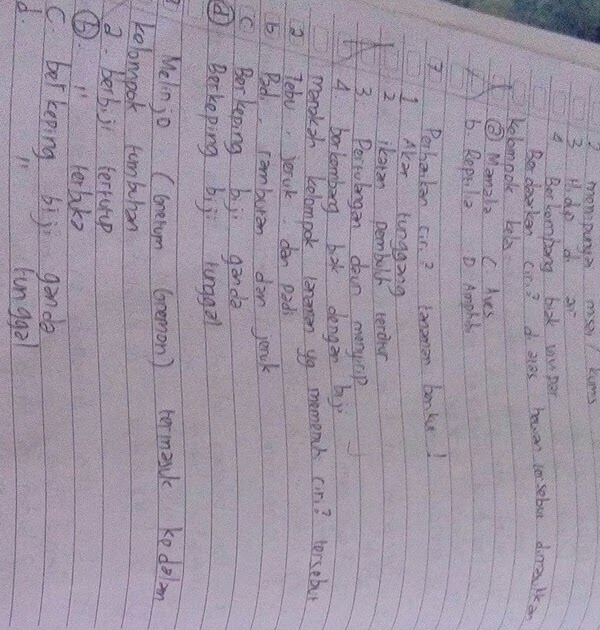 2 mempunyai misai / kumis
3 Hidup di air
4 Berkembang biak vivipar
Berdasarkan ciri2 di atas hewan tersebut dimasukkan
kelompok kelas
(a) Mamalia C Aves
b. Reptilia D Amphibi
7 Perhatikan ciri2 tanaman berikut !
1 Akar tunggang
2 ikatan pembuluh teratur
3. Pertulangan daun menyirip
4 berkembang biak dengan biji
manakah kelompok tanaman yg memenuhi ciri2 tersebut
a Tebu, jeruk, dan padi
b Padi, rambutan dan jeruk
c Berkeping biji ganda
(d) Berkeping biji tunggal
Melinjo (Gnetum Gnemon) termasuk ke dalam
kelompok tumbuhan
a. berbiji tertutup
(b). " terbuka
C. berkeping biji ganda
d. " tunggal